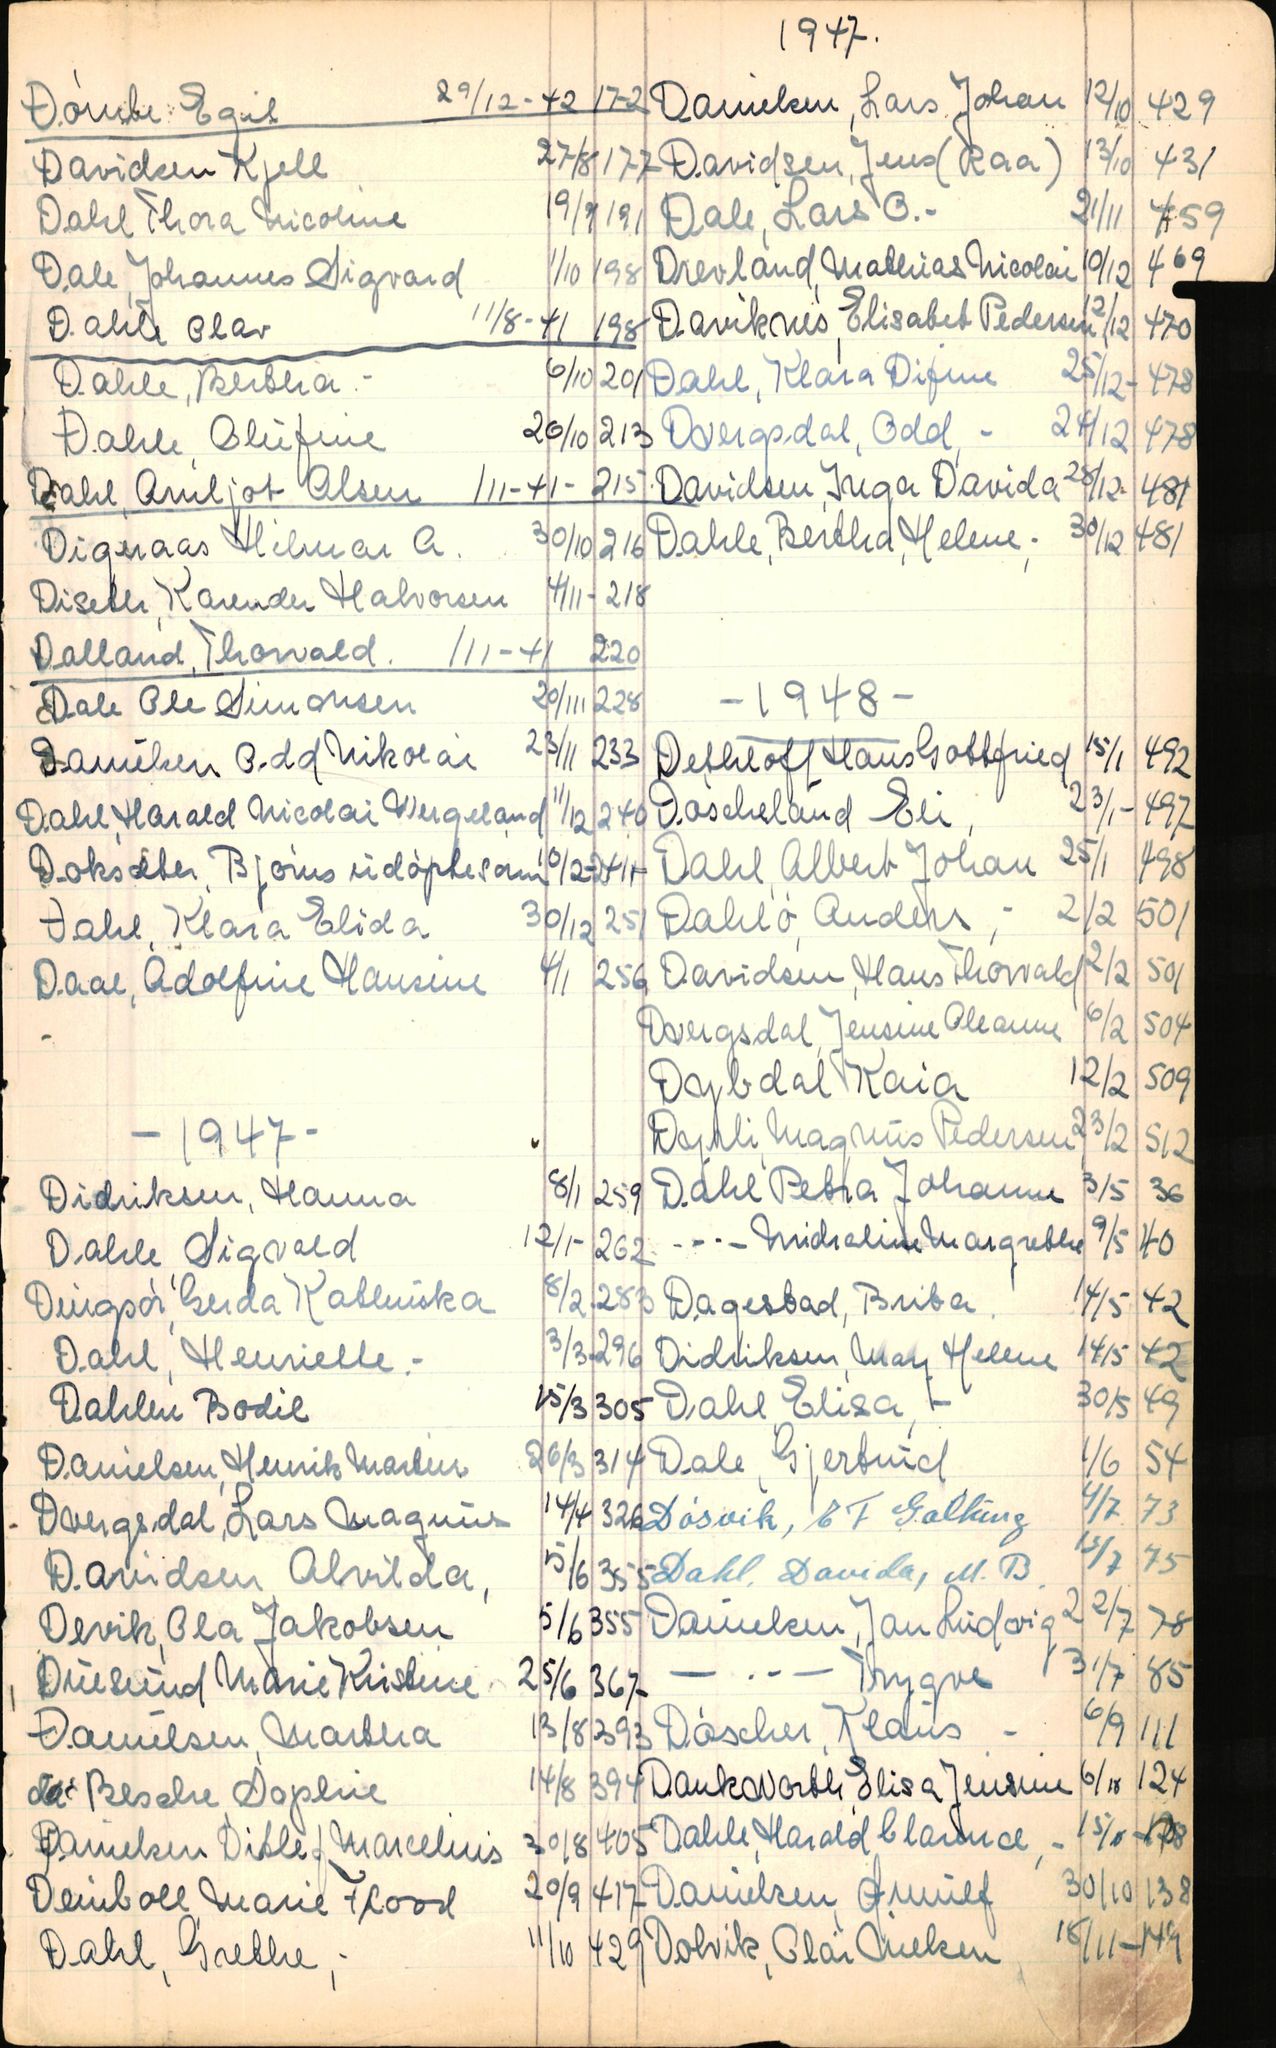 1947.
Dömbe Egil 29/12-42 172
Davidsen Kjell 27/8 177
Dahl Thora Nicoline 19/9 191
Dale, Johannes Sigvard 1/10 198
Dahle Olav 11/8-41 198
Dahle, Berthia - 6/10 201
Dahle, Olufine 26/10 213
Dahl, Arnljot Olsen 1/11-41- 215
Digeraas Hilmar A. 30/10 216
Diseth, Karender Halvorsen 4/11- 218
Dalland, Thorvald. 1/11-41 220
Dale Ole Simonsen 20/11 228
Danielsen Odd Nikolai 23/11 233
Dahl, Harald Nicolai Wergeland 11/12 240
Doksæter, Björns udöpte sönn 244
Dahl, Klara Elida 30/12 251
Daae, Adolfine Hansine 4/1 256
-1947-
Didriksen, Hanna 8/1 259
Dahle Sigvald 12/1- 262
Dingsör, Gerda Kathinka 8/2 283
Dahl, Henrielle.- 3/3-296
Dahlen Bodil 15/3 305
Danielsen, Henrik Martin 26/3 314
Dvergsdal, Lars Magnus 14/4 326
Davidsen Alvilda, 5/6 355
Devik, Ola Jakobsen 5/6 355
Duesund Marie Kristine 25/6 367
Danielsen, Marthea 13/8 393
de Besche Sophie 14/8 394
Danielsen Ditlef Marcelius 30/8 405
Deinboll Marie Flood 20/9 417
Dahl, Grethe,- 11/10 429
Danielsen, Lars Johan 12/10 429
Davidsen, Jens (Raa) 13/10 431
Dale, Lars O.- 21/11 459
Drevland, Mathias Nicolai 10/12 469
Daviknes, Elisabet Pedersen 12/12 470
Dahl, Klara Difine 25/12- 478
Dvergsdal, Odd, - 24/12 478
Davidsen, Inga Davida 28/12- 481
Dahle, Bertha, Helene,- 30/12 481
-1948-
Dethloff Hans Gottfried 15/1 492
Döscheland Eli, 23/1- 497
Dahl, Albert Johan 25/1 498
Dahlö, Anders,- 2/2 501
Davidsen, Hans Thorvald 2/2 501
Dvergsdal, Jensine Oleanne 6/2 504
Dybdal Kaia 12/2 509
Dyrli, Magnus Pedersen 23/2 512
Dahl Petra Johanne 3/5 36
---- Midraline Margrethe 9/5 40
Dagestad, Brita. 14/5 42
Didriksen, May Helene 14/5 42
Dahl, Elisa,- 30/5 49
Dale, Gjertrud 1/6 54
Dösvik, E F Galtung 4/7 73
Dahl, Davida, M. B. 15/7 75
Danielsen, Jan Ludvig 22/7 78
— -·- — Trygve 31/7 85
Döscher, Klaus - 6/9 111
Dankwarth Elisa Jensine 6/10 124
Dahle, Harald Clarence,- 15/10- 128
Danielsen, Arnulf 30/10 138
Dolvik, Olai Nielsen 18/11-149